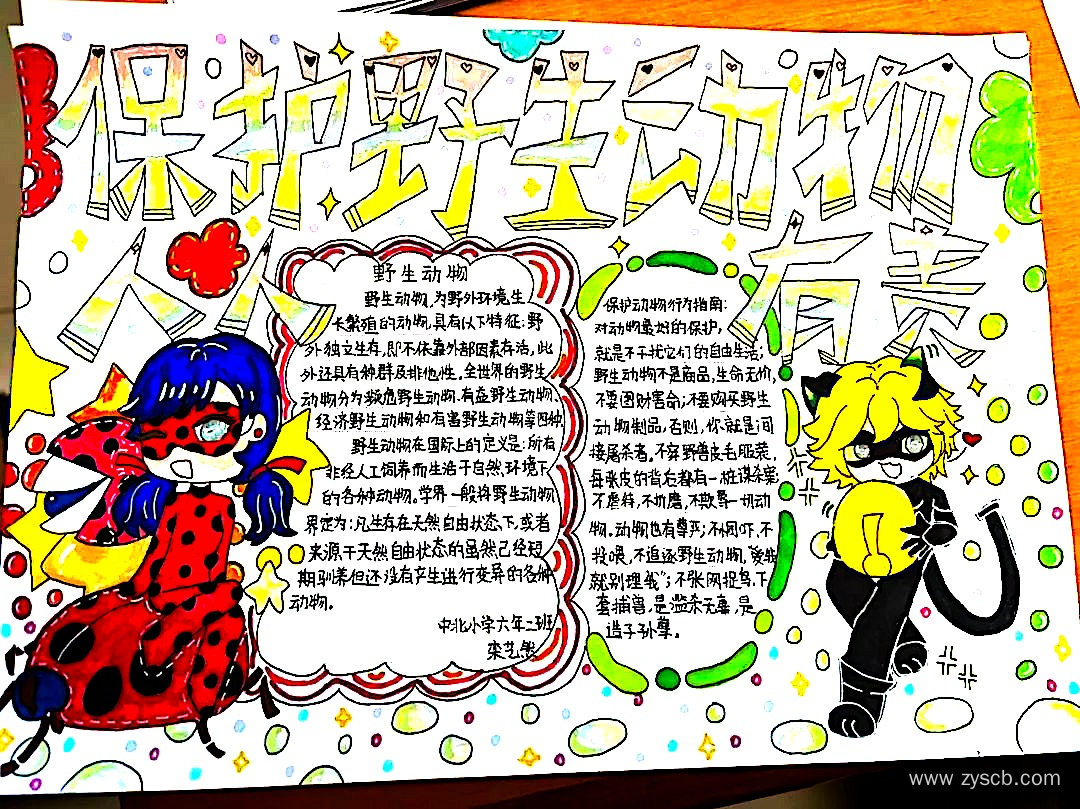 保护野生动物
人人有责
野生动物
野生动物,为野外环境生
长繁殖的动物,具有以下特征:野
外独立生存,即不依靠外部因素存活,此
外还具有种群及排他性。全世界的野生
动物分为濒危野生动物、有益野生动物、
经济野生动物和有害野生动物等四种
野生动物在国际上的定义是:所有
非经人工饲养而生活于自然环境下
的各种动物。学界一般将野生动物
界定为:凡生存在天然自由状态下,或者
来源于天然自由状态的虽然已经短
期驯养但还没有产生进行变异的各种
动物。
中北小学六年二班
栾艺
保护动物行为指南:
对动物最好的保护,
就是不干扰它们的自由生活;
野生动物不是商品,生命无价,
不要图财害命;不要购买野生
动物制品,否则,你就是间
接屠杀者。不穿野兽皮毛服装,
每张皮的背后都有一桩谋杀案;
不虐待,不折磨,不欺辱一切动
物。动物也有尊严;不恐吓,不
投喂,不追逐野生动物,爱我
就别理我";不张网捉鸟,下
套捕兽,是滥杀无辜,是
造子孙孽。
www.zyscb.com